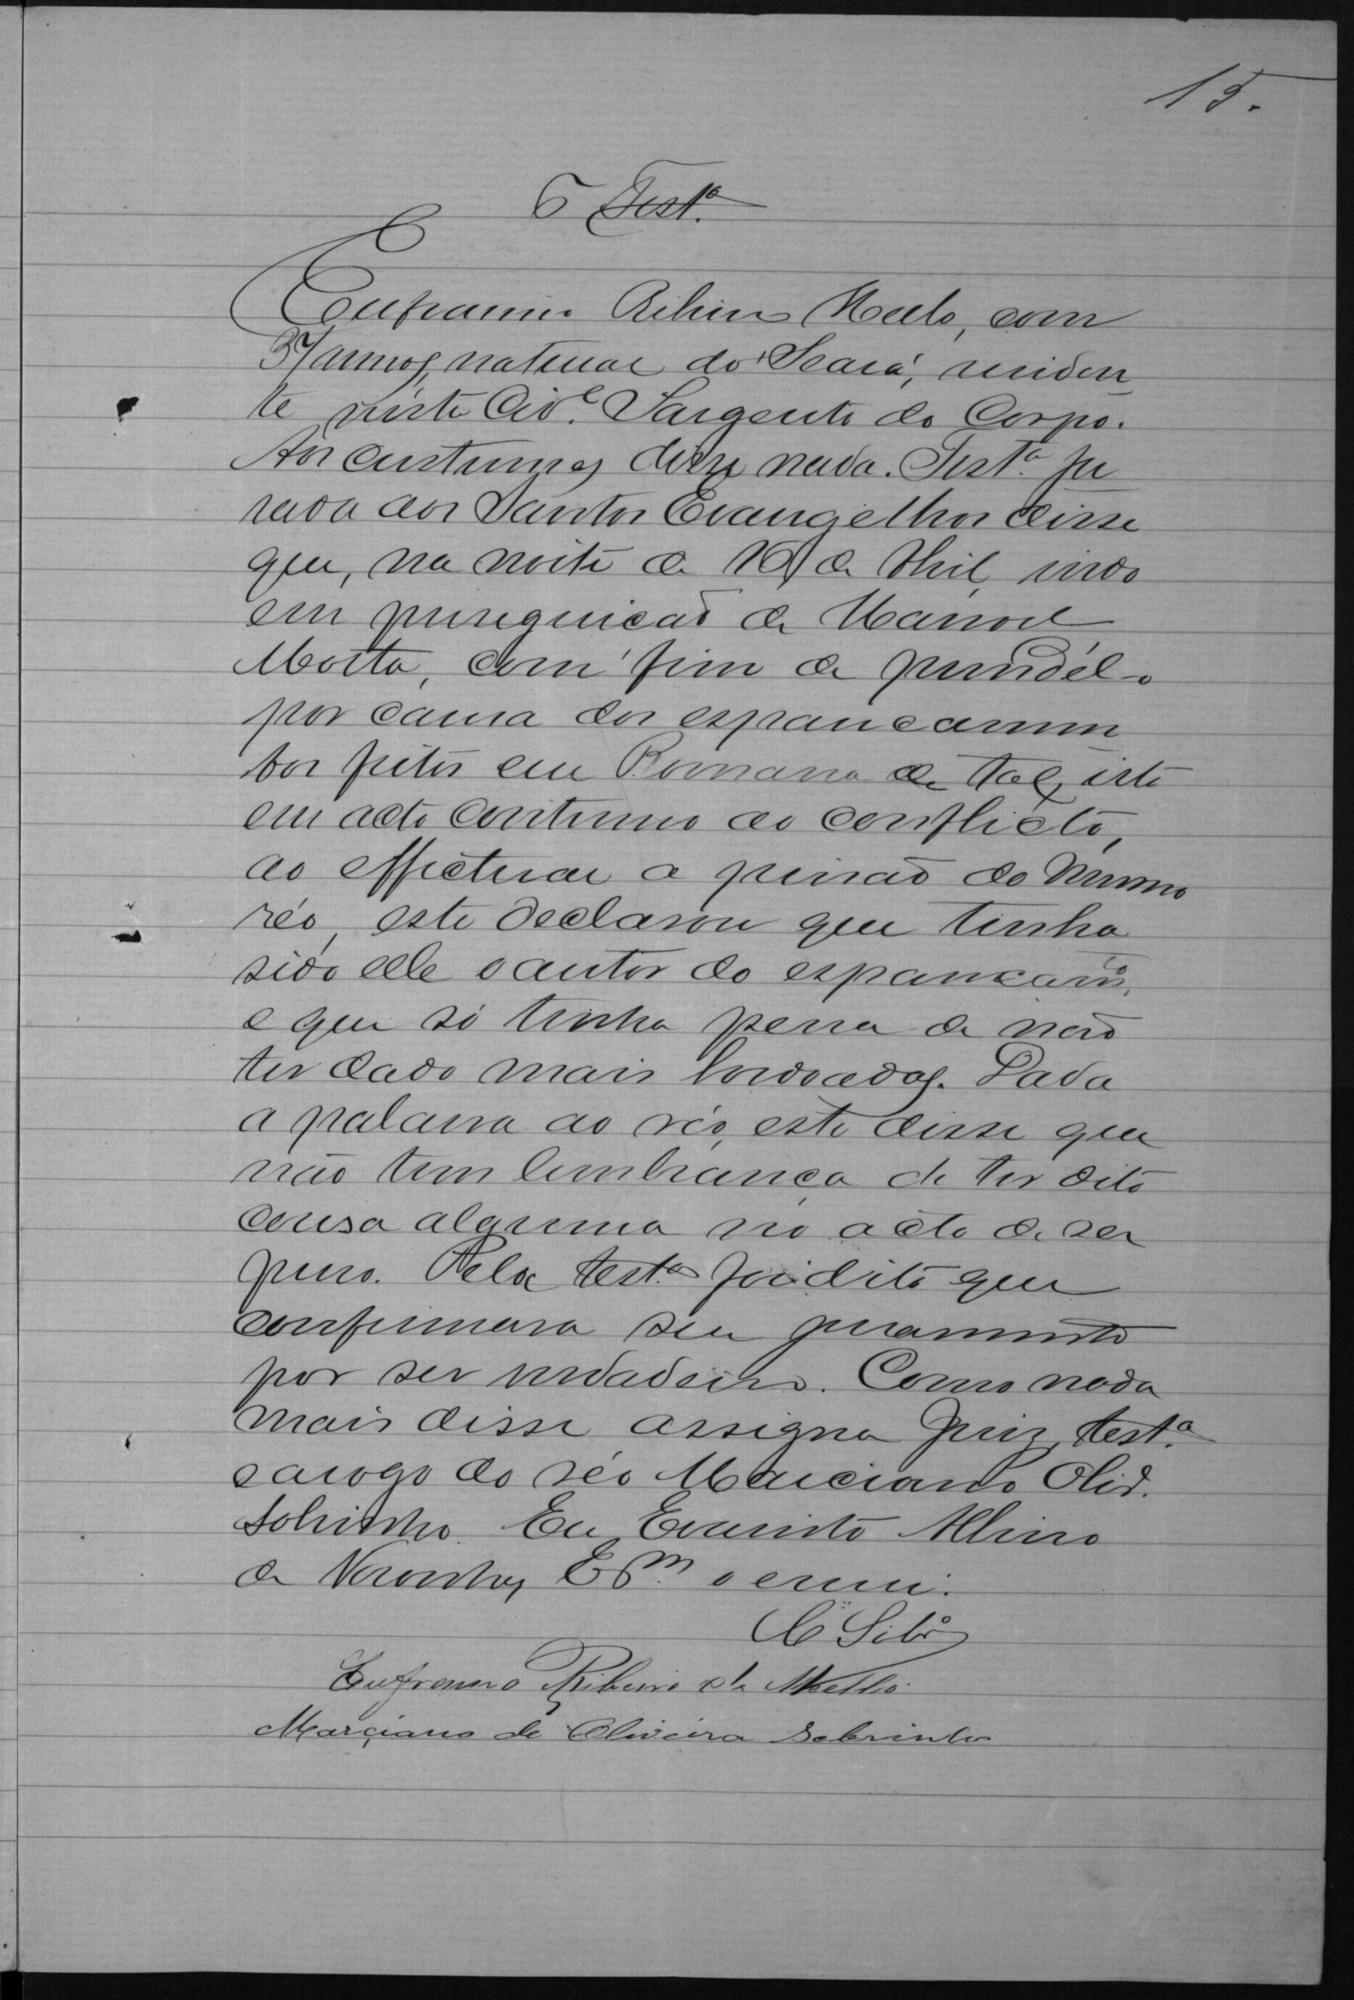 15.
6 Test.ª
Eufranno Ribeiro Mello, com
37 annos, natural do Seará, residen
te nésta Cid.e Sargento do Corpo.
Aos custumes disse nada. Test.ª ju
rada aos Santos Evangelhos disse
que, na noite de 16 de Abril, indo
em pirseguicaõ de Manoel
Motta, com fim de prendêl-o
por causa dos espancamen
tos feitos em Romana de tal, isto
em acto continuo ao conflicto,
ao effectuar a prisaõ do mesmo
réo, este declarou que tinha
sido elle o autor do espancam.to,
e que só tinha pena de naõ
ter dado mais bordoadas. Dada
a palavra ao réo, este disse que
não tem lembrança de ter dito
cousa alguma no acto de ser
preso. Pela test.ª foi dito que
confirmava seu juramento
por ser verdadeiro. Como nada
mais disse assigna Juiz, test.ª
e arogo do réo Marciano Oliv.
Sobrinho. Eu, Evaristo Albino
de Noronha, Esm o escrevi.
Eufranno Ribeiro de Mello
Marciano de Oliveira Sobrinho